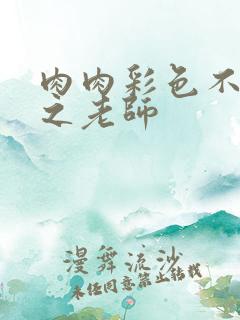 肉肉彩色不
之老師
漫舞流沙
未经同意禁止转载